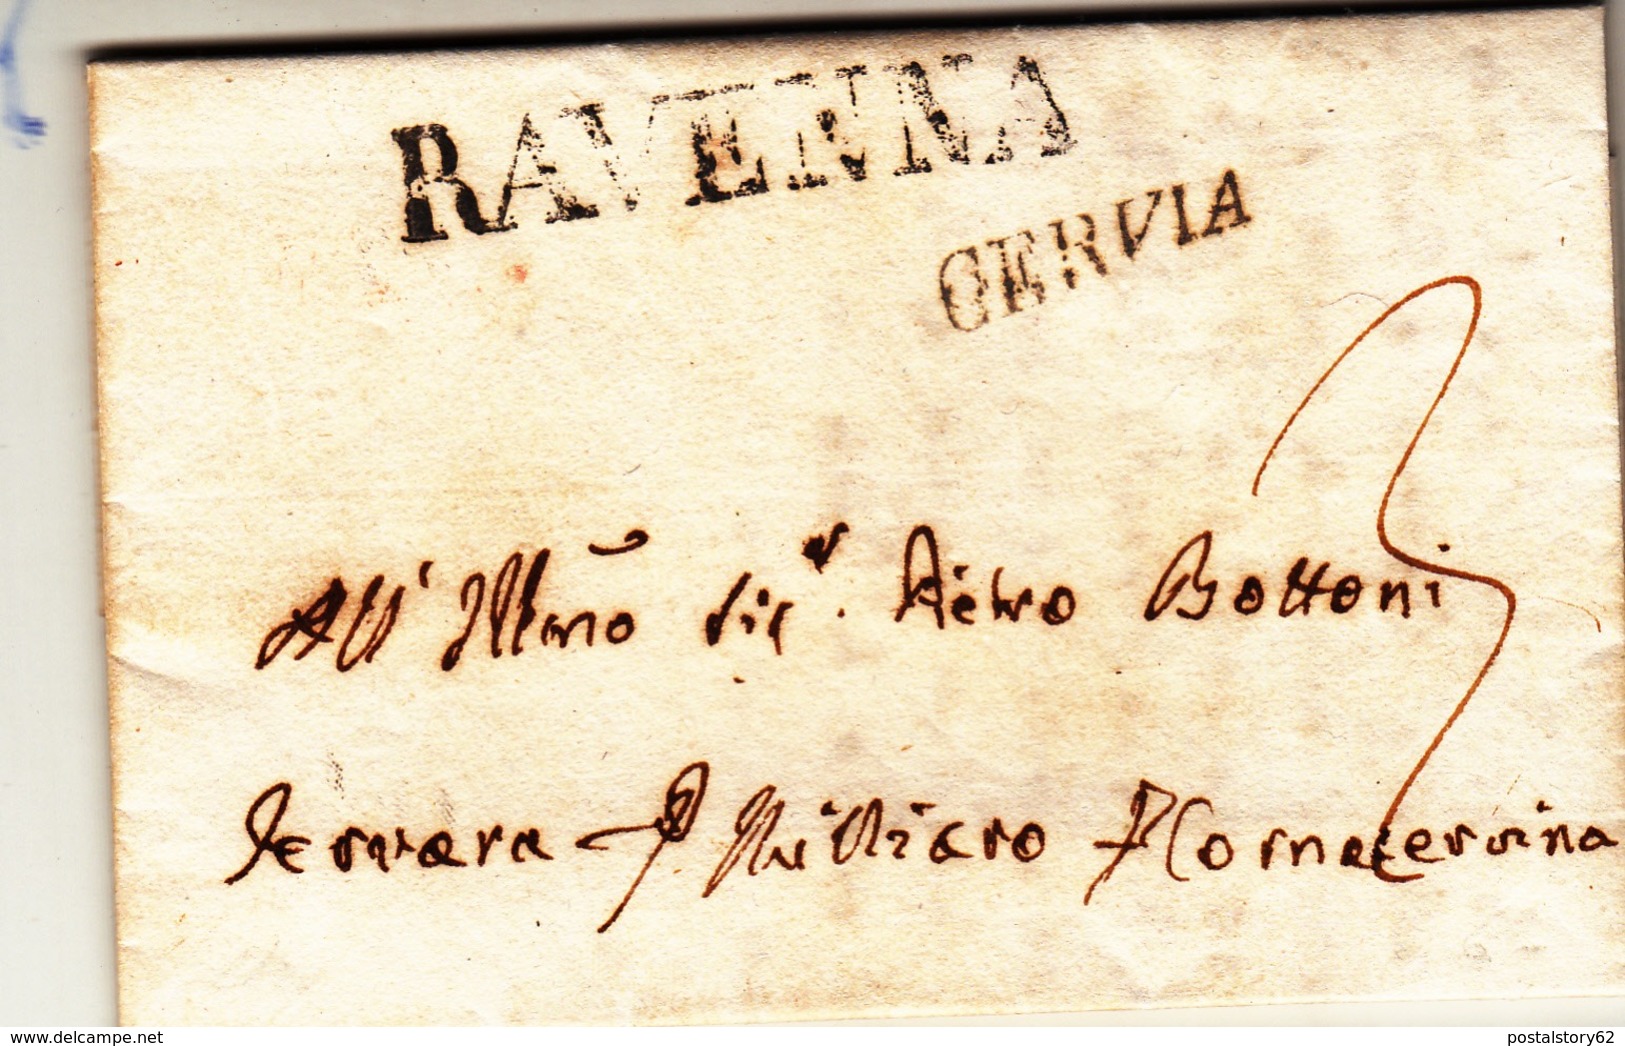 RAVENNA
CERVIA
3
All' Illmo Sigr. Pietro Bottoni
Ferrara P Migliaro P
www.delcampe.net
postalstory62